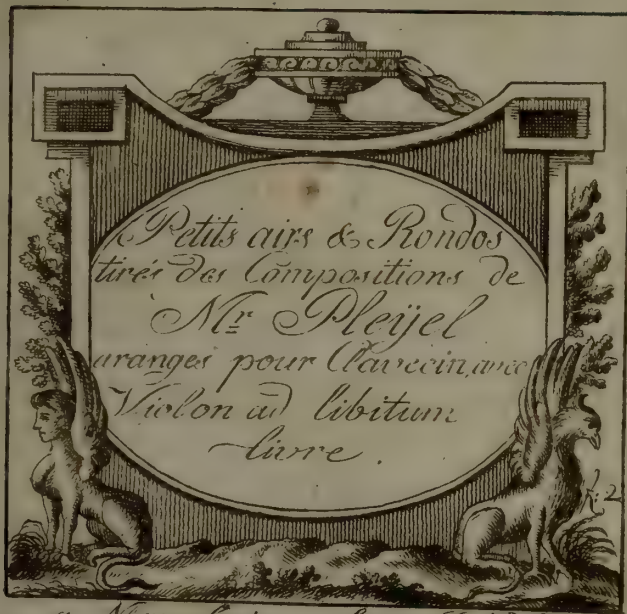 Petits airs & Rondos
tirés des Compositions de
Mr Pleÿel
aranges pour Clavecin, avec
Violon ad libitum
livre .